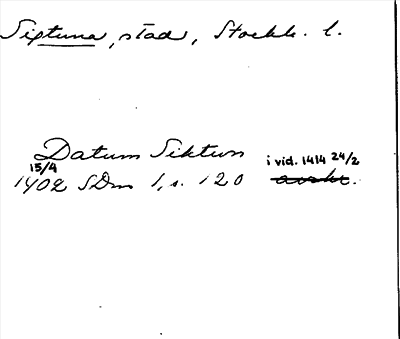 Sigtuna, stad, Stockh. l.
Datum Siktun i vid. 1414 24/2
15/4
1402 SDns 1, s. 120 avskr.